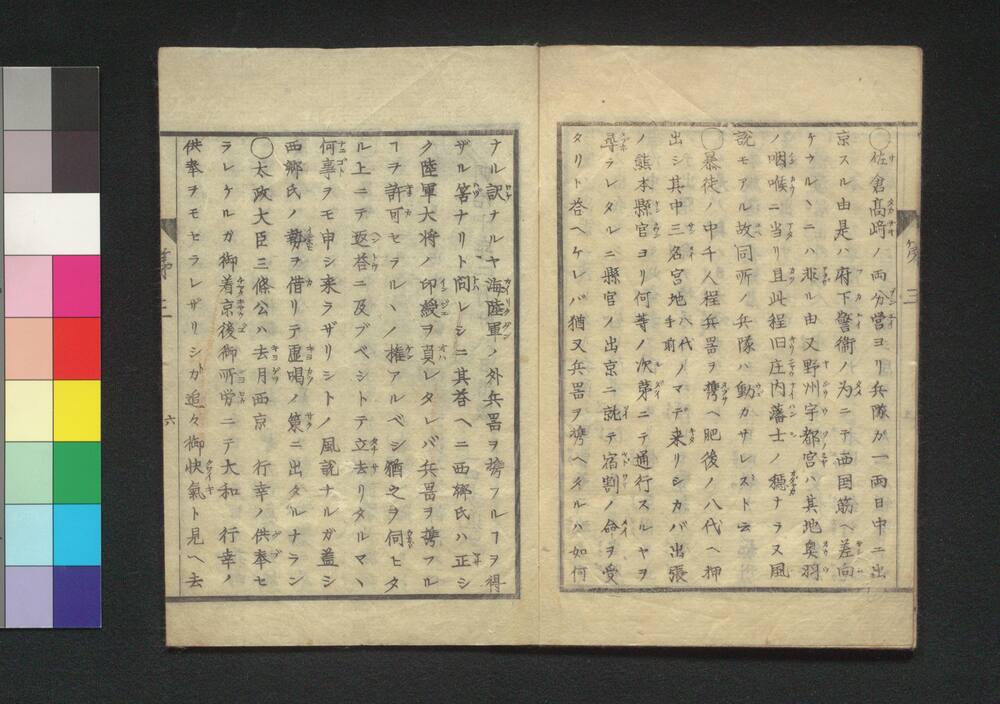 ○佐倉髙﨑ノ両分営ヨリ兵隊ガ一両日中ニ出
京スル由是ハ府下警衛ノ為ニテ西国筋ヘ差向
ケラルヽニハ非ル由又野州宇都宮ハ其地奥羽
ノ咽喉ニ当リ且此程旧庄内藩士ノ穏ナラス風
説モアル故同所ノ兵隊ハ動カサレスト云
○暴徒ノ中千人程兵器ヲ携ヘ肥後ノ八代ヘ押
出シ其中三名宮地八代手前ノマデ来リシカバ出張
ノ熊本縣官ヨリ何等ノ次第ニテ通行スルヤヲ
尋ラレタルニ縣官ノ出京ニ託テ宿割ノ命ヲ受
タリト答ヘケレバ猶又兵器ヲ携ヘタルハ如何
ナル訳ナルヤ海陸軍ノ外兵器ヲ携フルヿヲ得
ザル筈ナリト問レシニ其答ヘニ西郷氏ハ正シ
ク陸軍大将ノ印綬ヲ負レタレバ兵器ヲ携フル
ヿヲ許可セラルヽノ権アルベシ猶之ヲ伺ヒタ
ル上ニテ返答ニ及ブベシトテ立去リタルマヽ
何事ヲモ申シ来ラザリシトノ風説ナルガ蓋シ
西郷氏ノ勢ヲ借リテ虚唱ノ策ニ出タルナラン
○太政大臣三條公ハ去月西京 行幸ノ供奉セ
ラレケルガ御着京後御所労ニテ大和 行幸ノ
供奉ヲモセラレザリシガ追々御快氣ト見ヘ去
第三
六